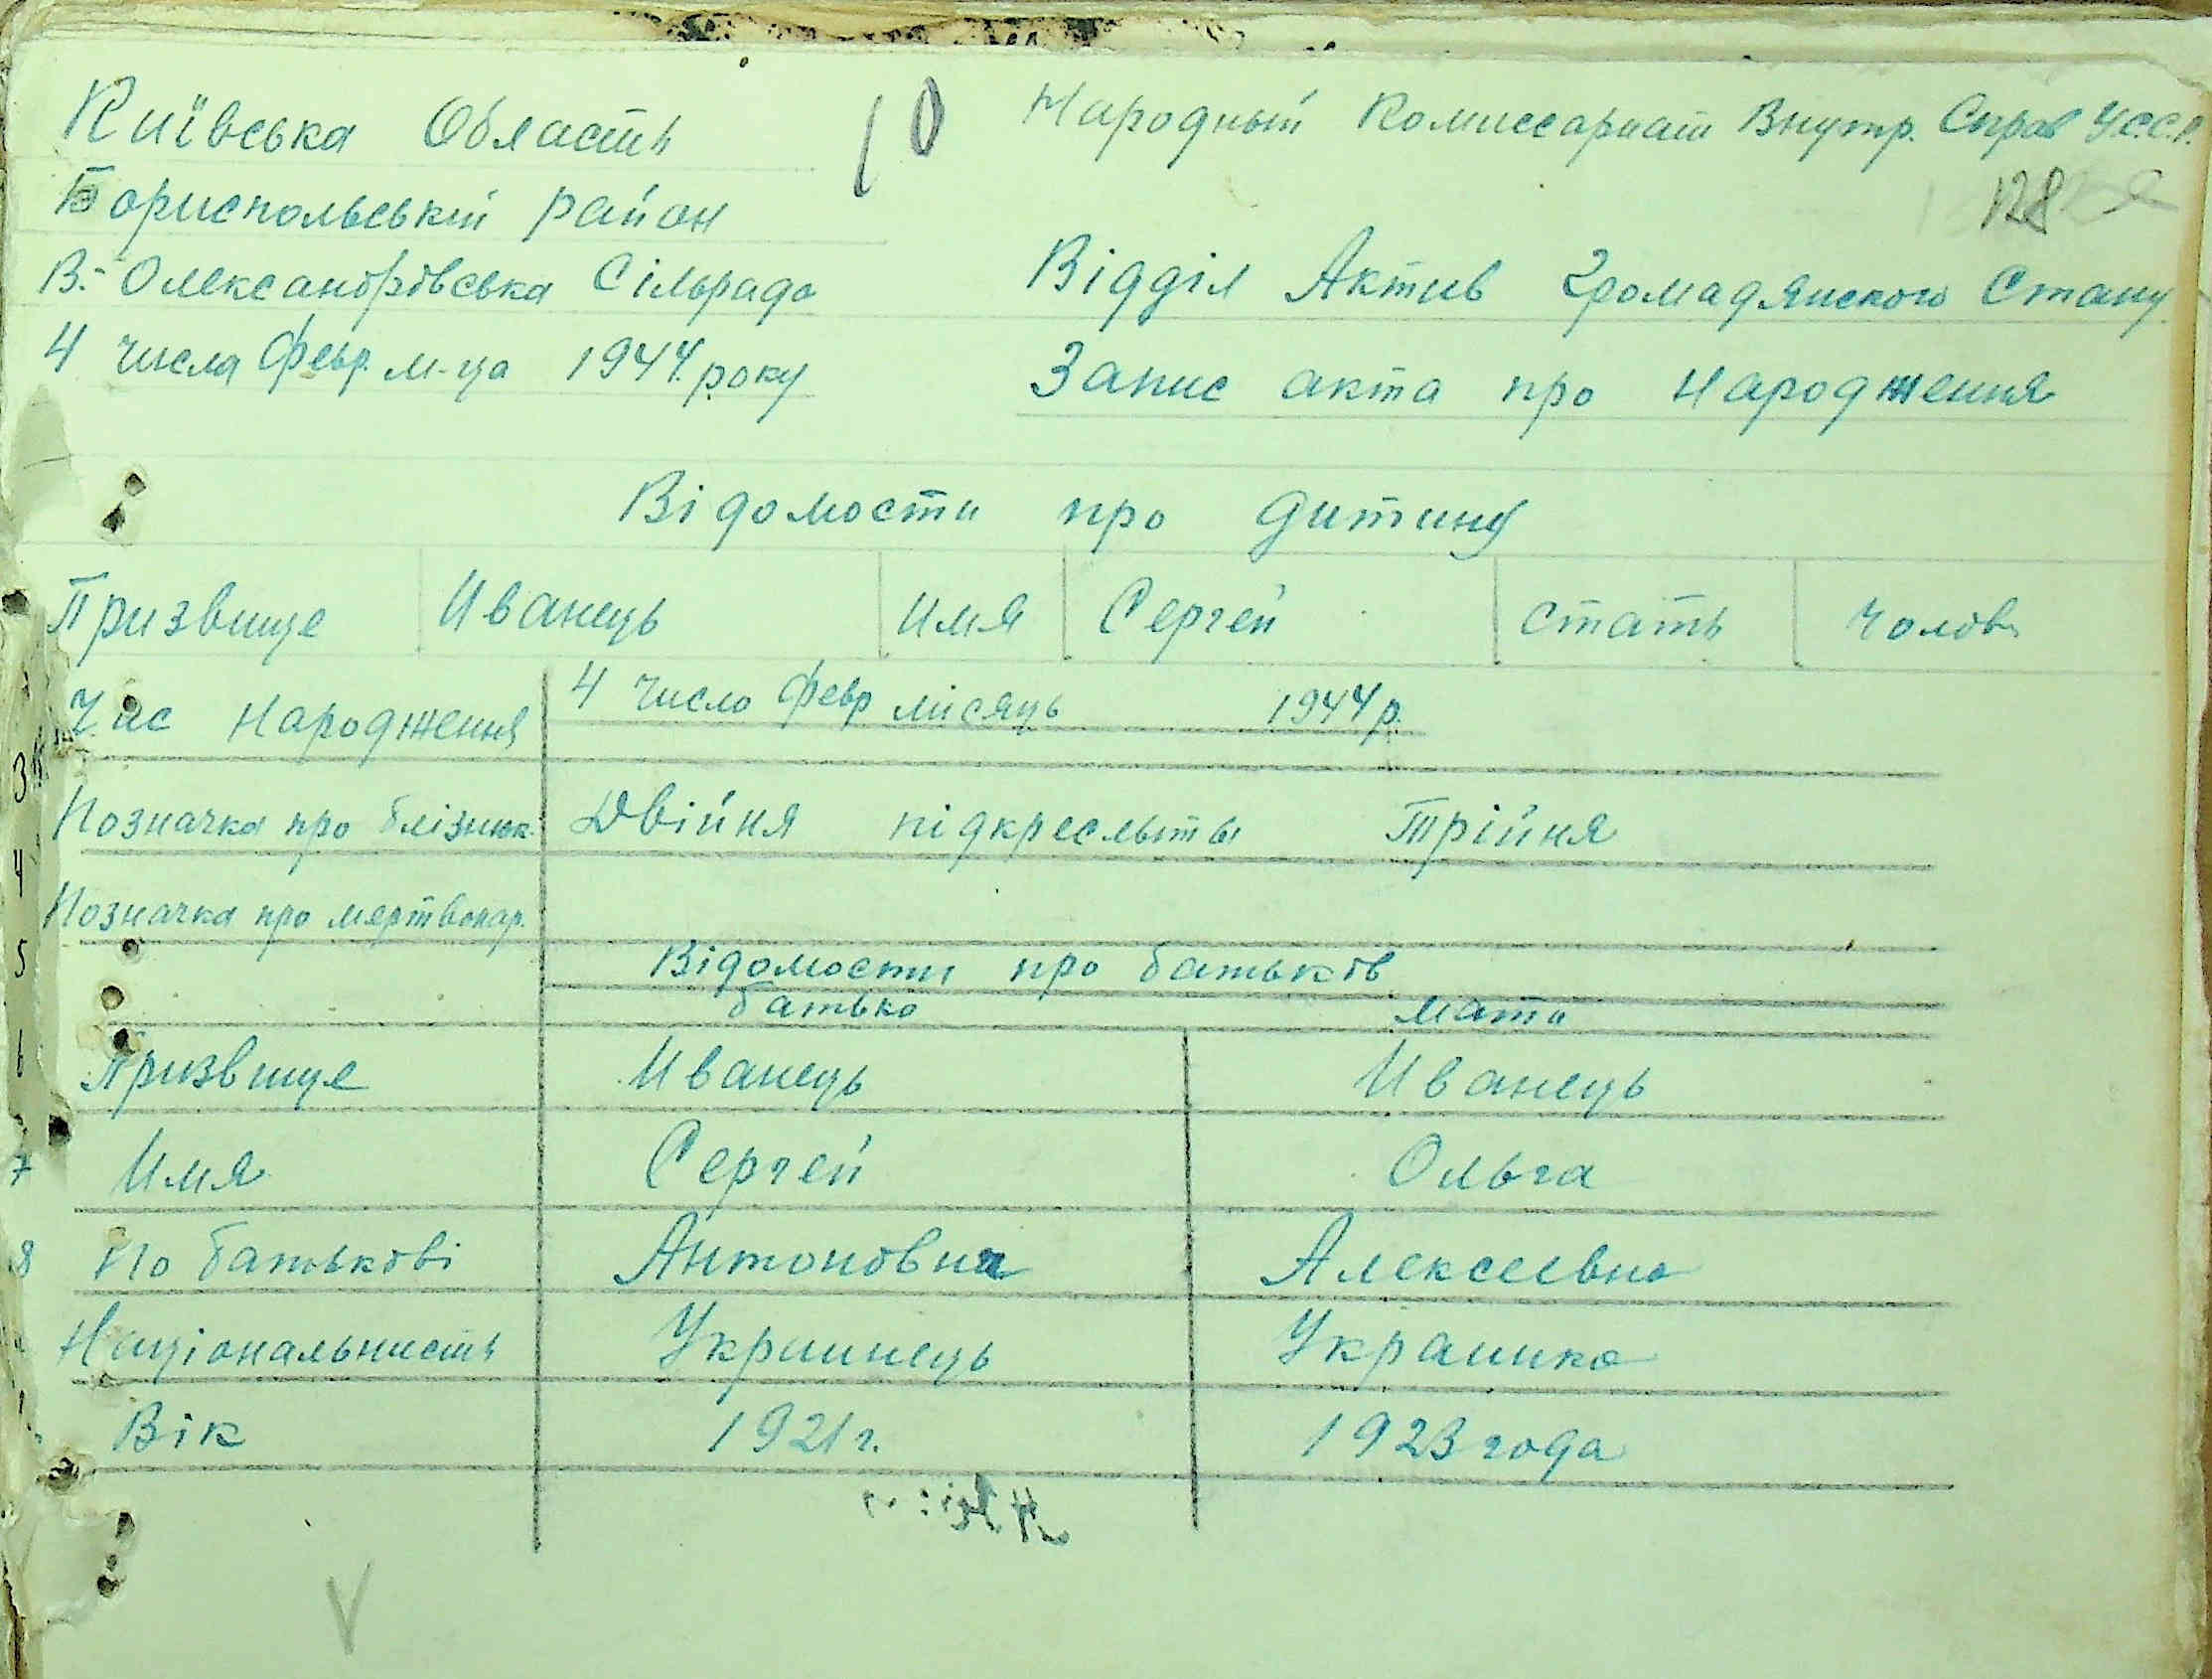 Київська Область
10
Народный Комиссариат Внутр. Справ УССР.
128
Бориспольський район
В.-Олександрівська Сільрада
Відділ Актив Громадянского Стану
4 числа Февр. м-ца 1944. року
Запис акта про народження
Відомости про дитину
Призвище Иванець имя Сергей стать чолов
Час народження 4 число Февр місяць 1944 р.
Позначка про блізнюк. Двійня підкреслыты Трійня
Позначка про мертвонар.
Відомости про батьків
батько мати
Призвище Иванець Иванець
Имя Сергей Ольга
По батькові Антонович Алексеевна
Національнисть Украинець Украинка
Вік 1921 г. 1923 года
3
4
5
6
7
8